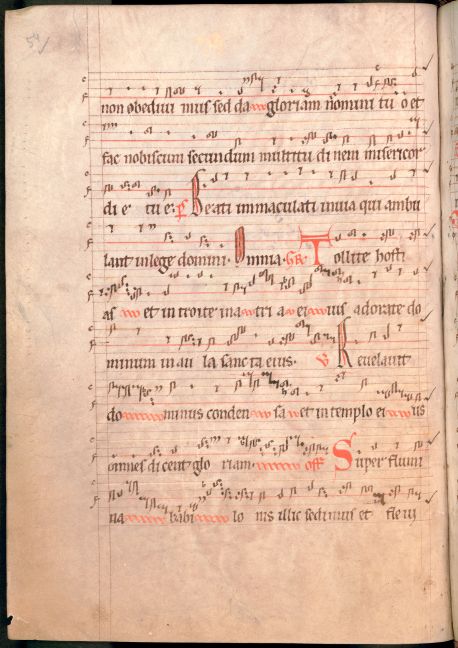 non obedivi mus sed da gloriam nomini tu o et
fac nobiscum secundum multitu di nem misericor
di e tu e p Beati inmaculati in via qui ambu
lant in lege domini Omnia Tollite hosti
as et in troite in a tri a ei ius adorate do
minum in au la sancta eius v Revelavit
do minus conden sa et in templo ei us
omnes dicent glo riam off Super flumi
na babi lo nis illic sedimus et flevi